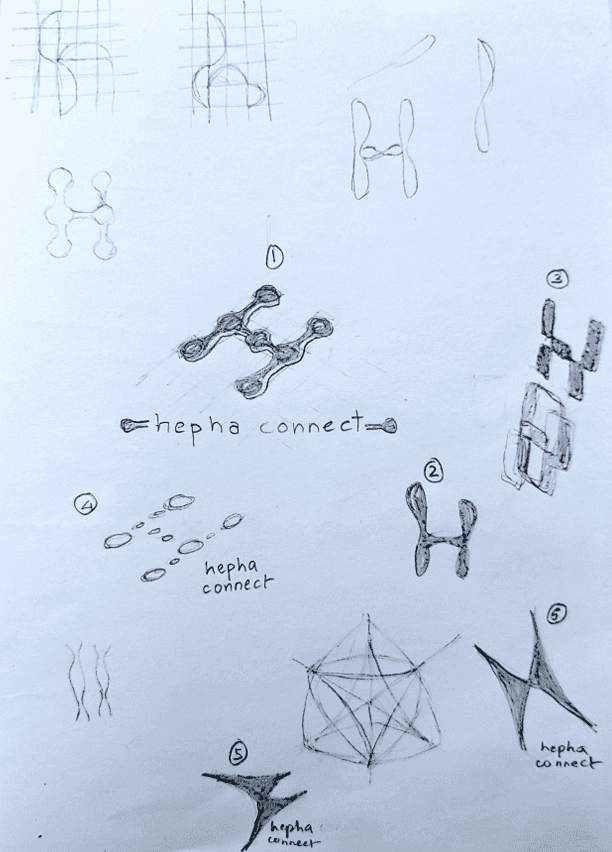 1
3
hepha connect
2
4
hepha
connect
6
hepha
connect
5
hepha
connect